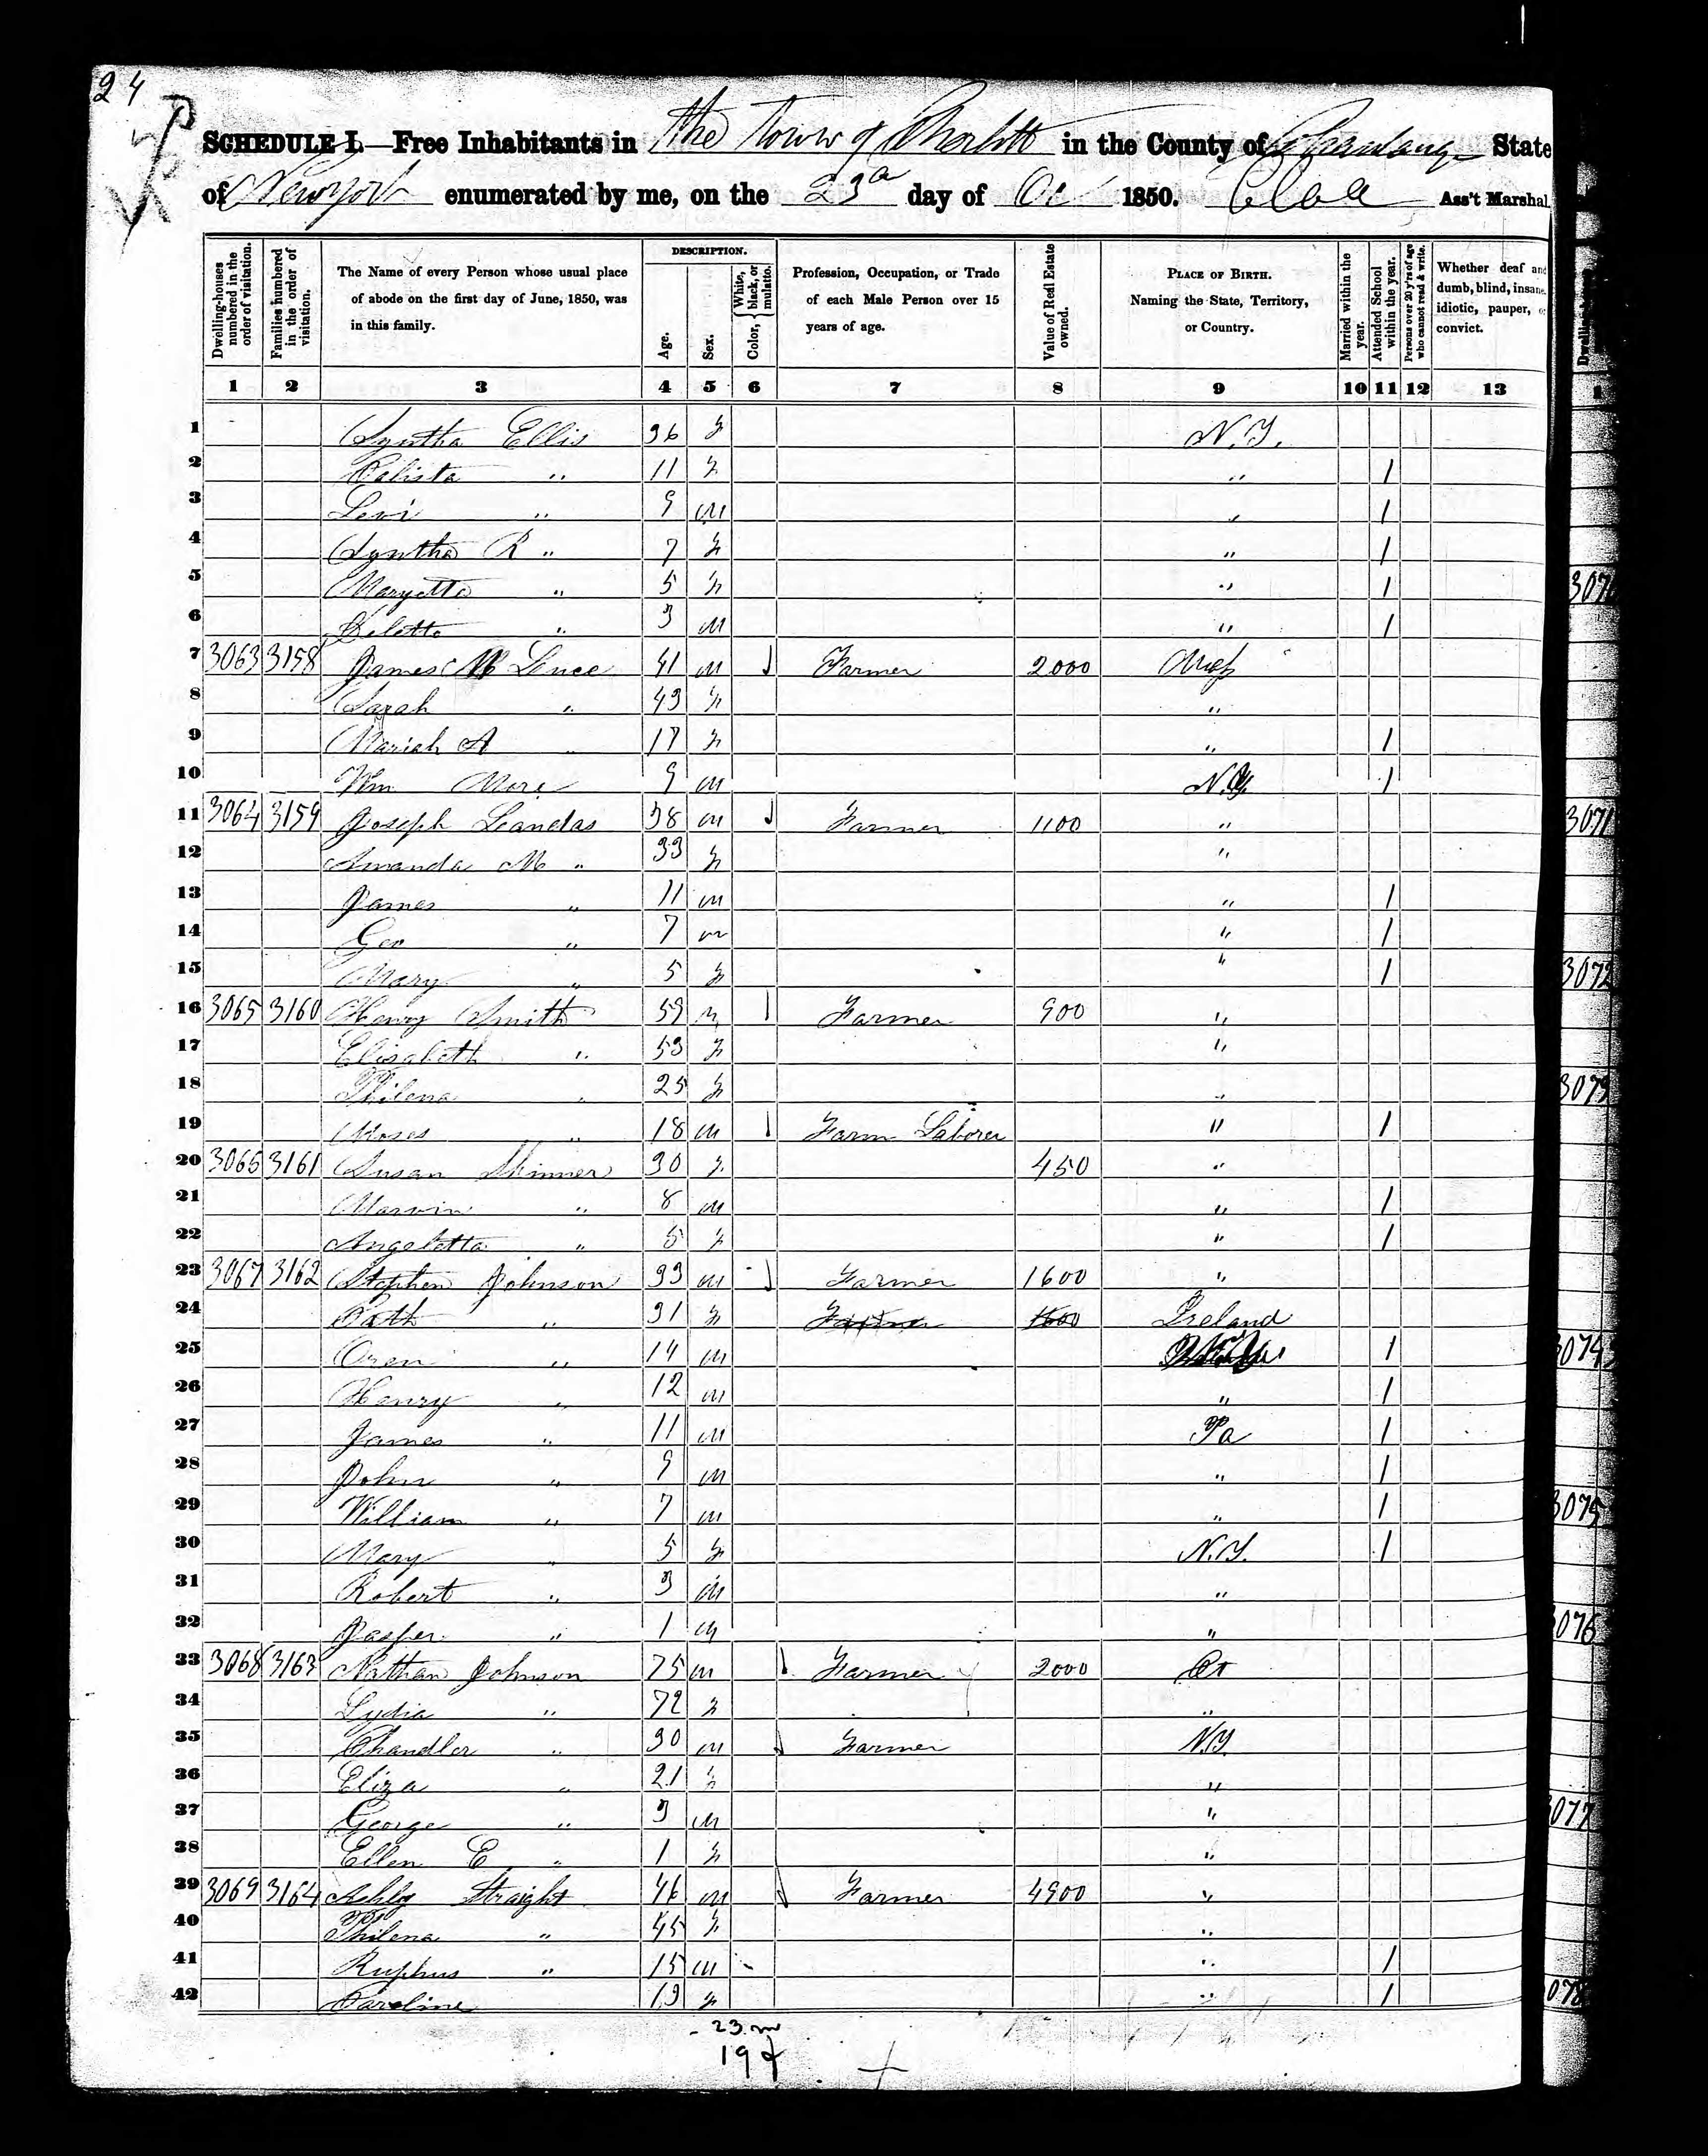 24
SCHEDULE I.—Free Inhabitants in the Town of in the County of State
of New York enumerated by me, on the 23d day of 1850. Ass't Marshal
Dwelling-houses numbered in the order of visitation.
Families numbered in the order of visitation.
The Name of every Person whose usual place of abode on the first day of June, 1850, was in this family.
DESCRIPTION.
Age.
Sex.
Color, { White, black, or mulatto.
Profession, Occupation, or Trade of each Male Person over 15 years of age.
Value of Real Estate owned.
PLACE OF BIRTH. Naming the State, Territory, or Country.
Married within the year.
Attended School within the year.
Persons over 20 y'rs of age who cannot read & write.
Whether deaf and dumb, blind, insane, idiotic, pauper, or convict.
1 2 3 4 5 6 7 8 9 10 11 12 13
1 Syntha Ellis 36 f N.Y.
2 Calista " 11 f " 1
3 Levi " 9 m " 1
4 Syntha R " 7 f " 1
5 Maryette " 5 f " 1
6 " 3 m " 1
7 3063 3158 James M Luce 41 m Farmer 2000
8 Sarah " 43 f "
9 Mariah A " 17 f " 1
10 Wm More 9 m N.Y. 1
11 3064 3159 Joseph Landas 38 m Farmer 1100 "
12 Amanda M " 33 f "
13 James " 11 m " 1
14 Geo " 7 m " 1
15 Mary " 5 f " 1
16 3065 3160 Henry Smith 59 m Farmer 900 "
17 Elisabeth " 53 f "
18 Philena " 25 f "
19 Moses " 18 m Farm Laborer " 1
20 3066 3161 Susan Skinner 30 f 450 "
21 Marvin " 8 m " 1
22 Angeletta " 5 f " 1
23 3067 3162 Stephen Johnson 33 m Farmer 1600 "
24 Cath " 31 f Farmer 1600 Ireland
25 Oren " 14 m 1
26 Henry " 12 m " 1
27 James " 11 m Pa 1
28 John " 9 m " 1
29 William " 7 m " 1
30 Mary " 5 f N.Y. 1
31 Robert " 3 m "
32 Jasper " 1 m "
33 3068 3163 Nathan Johnson 75 m Farmer 2000 Ct
34 Lydia " 72 f "
35 Chandler " 30 m Farmer N.Y.
36 Eliza " 21 f "
37 George " 3 m "
38 Ellen E " 1 f "
39 3069 3164 Straight 46 m Farmer 4900 "
40 Philena " 45 f "
41 Ruphus " 15 m " 1
42 Caroline 13 f " 1
23 m
19 f
3071
3072
3073
3074
3075
3076
3077
3078